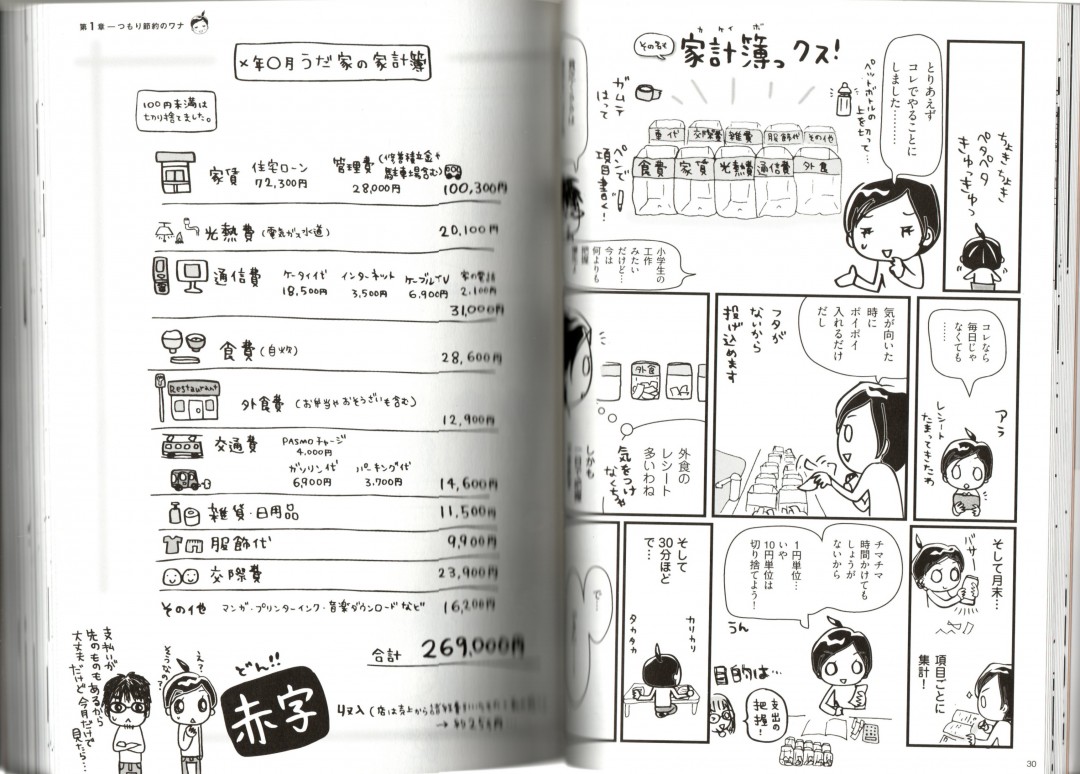 とりあえず
コレでやることに
しました………
ちょきちょき
ペタペタ
きゅっきゅっ
その名も
家計簿っクス!
カケイボ
ペットボトルの
上を切って…
ガムテ
はって
ペンで
項目書く!
車代
交際費
雑費
服飾代
その他
食費
家賃
光熱費
通信費
外食
小学生の
工作
みたい
だけど…
今は
何よりも
把握
コレなら
毎日じゃ
なくても
……
アラ
レシート
たまってきたわ
気が向いた
時に
ポイポイ
入れるだけ
だし
フタが
ないから
投げ込めます
外食
外食の
レシート
多いわね
気をつけ
なくちゃ
しかも
そして月末…
バサー
項目ごとに
集計!
チマチマ
時間かけても
しょうが
ないから
1円単位…
いや
10円単位は
切り捨てよう!
うん
目的は…
支出の
把握!
そして
30分ほど
で…
カリカリ
タカタカ
で…
30
第1章―つもり節約のワナ
×年〇月うだ家の家計簿
100円未満は
切り捨てました。
家賃 住宅ローン 72,300円 管理費(修善積立金や駐車場含む) 28,000円 100,300円
光熱費(電気ガス水道) 20,100円
通信費 ケータイ代 18,500円 インターネット 3,500円 ケーブルTV 6,900円 家の電話 2,100円
31,000円
食費(自炊) 28,600円
Restaurant
外食費(お弁当やおそうざいも含む)
12,900円
交通費 PASMOチャージ 4,000円
ガソリン代 6,900円 パーキング代 3,700円 14,600円
雑貨・日用品 11,500円
服飾代 9,900円
交際費 23,900円
その他 マンガ・プリンターインク・音楽ダウンロードなど 16,200円
合計 269,000円
どん!!
赤字
え?
そうなの?
支払いが
先のものもあるから
大丈夫だけど今月だけで
見たら…
収入